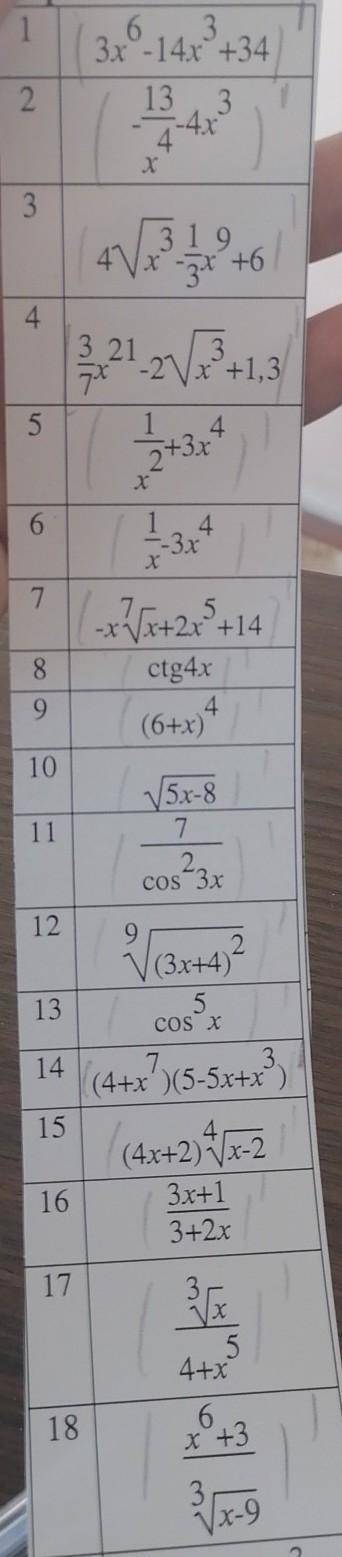 1 (3x⁶-14x³+34)'
2 (-13/x⁴-4x³)'
3 (4√x³-1/3x⁹+6)'
4 (3/7x²¹-2√x³+1,3)'
5 (1/x²+3x⁴)'
6 (1/x-3x⁴)'
7 (-x⁷√x+2x⁵+14)'
8 (ctg4x)'
9 ((6+x)⁴)'
10 (√5x-8)'
11 (7/cos²3x)'
12 (⁹√(3x+4)²)'
13 (cos⁵x)'
14 ((4+x⁷)(5-5x+x³))'
15 ((4x+2)⁴√x-2)'
16 (3x+1/3+2x)'
17 (³√x/4+x⁵)'
18 (x⁶+3/³√x-9)'